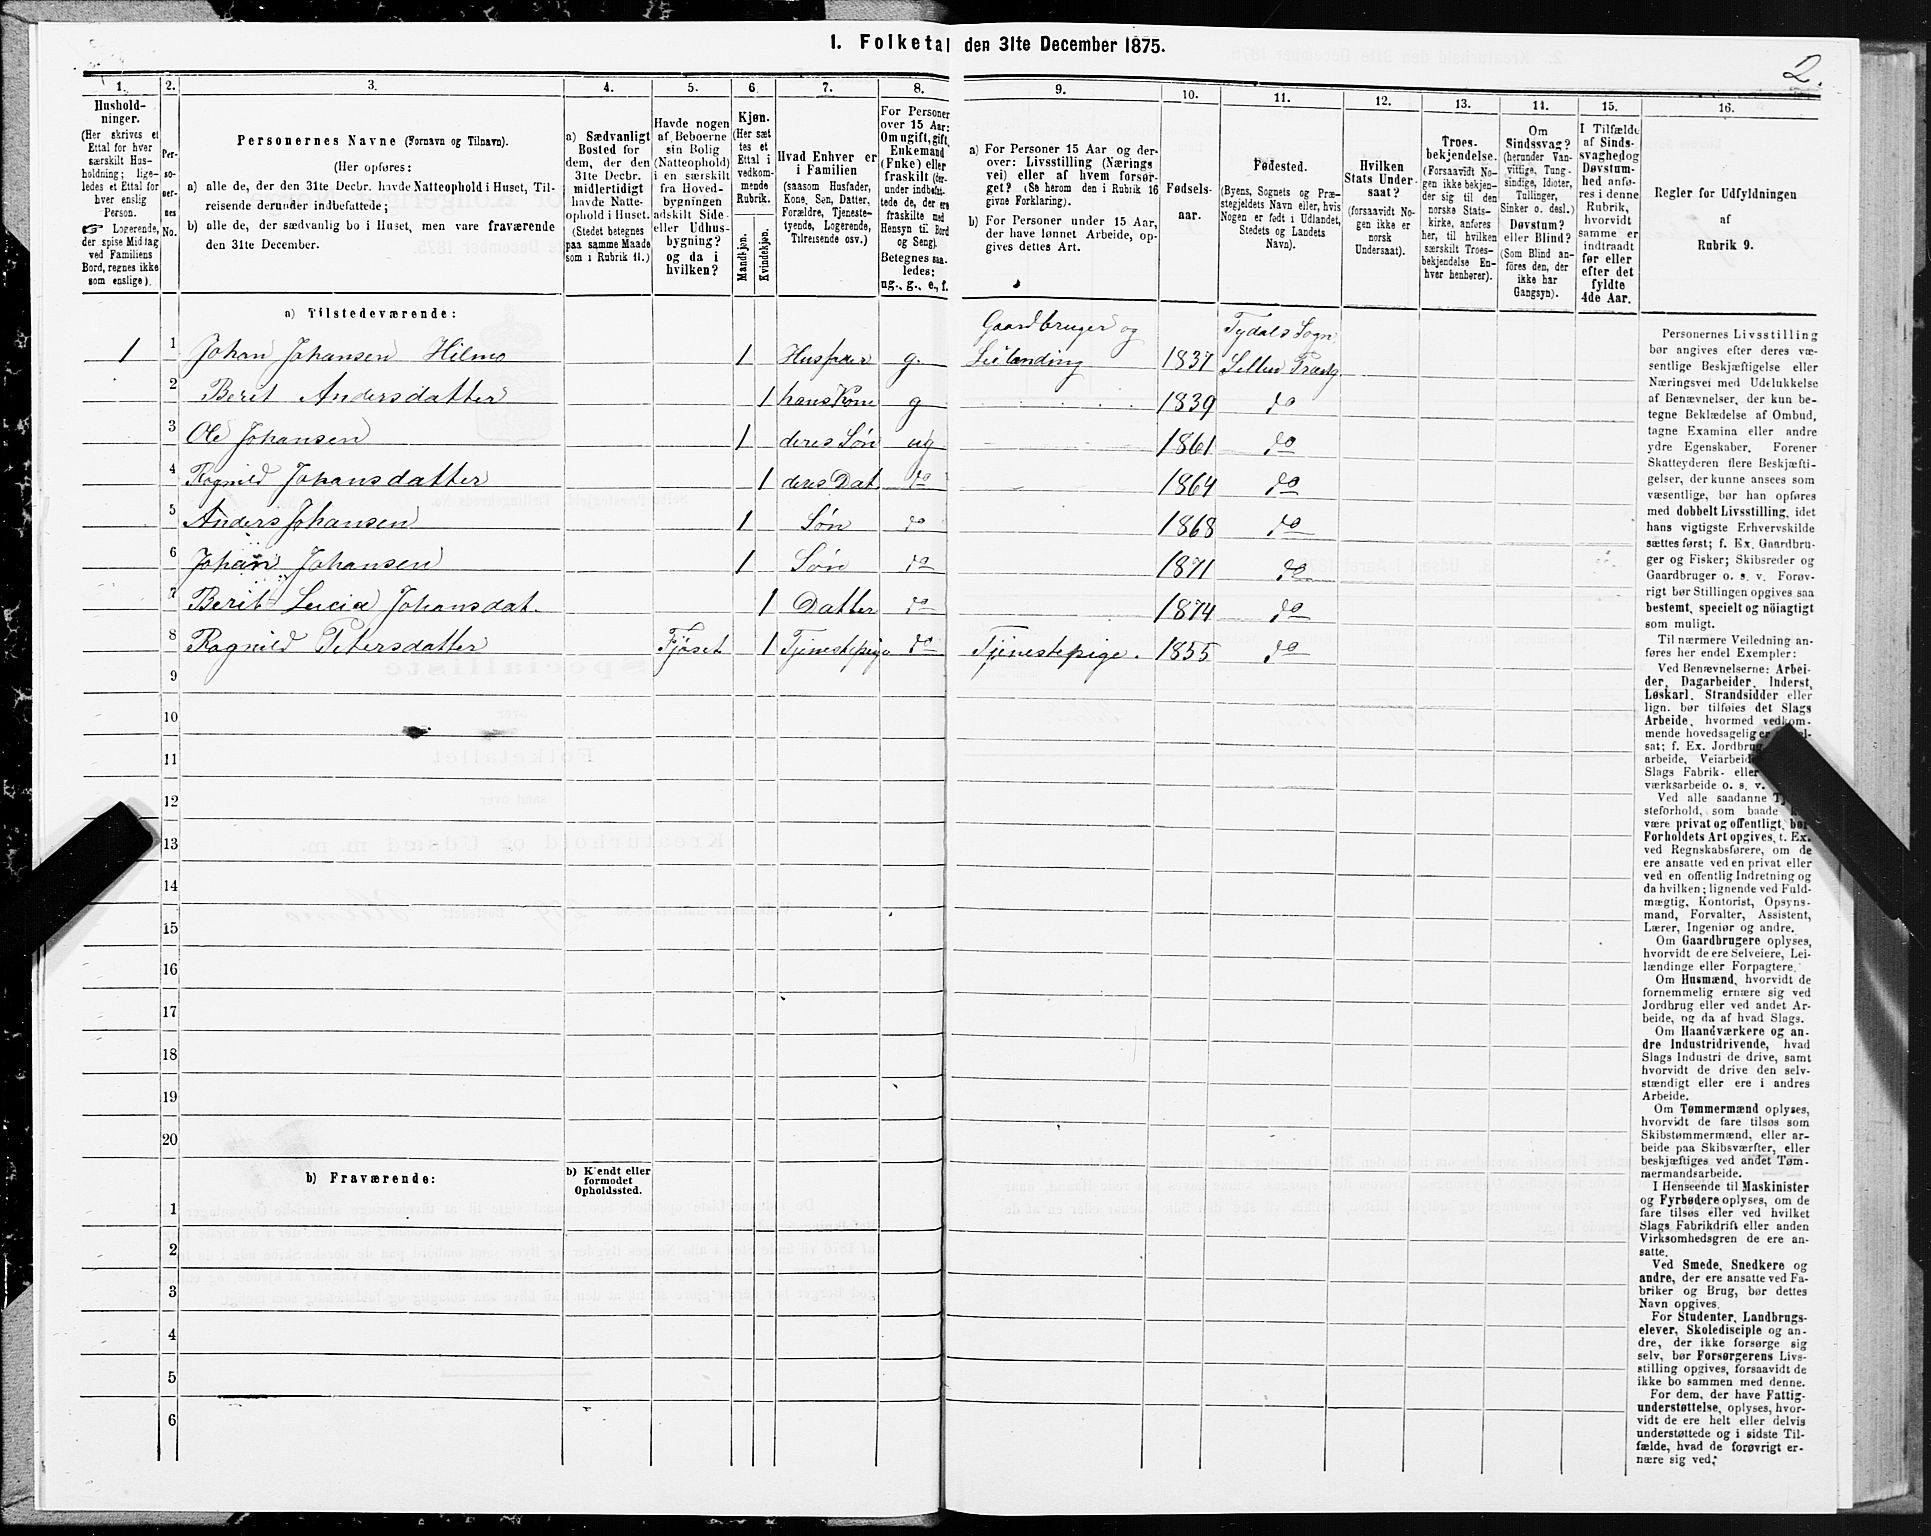 1. Folketal den 31te December 1875.
2.
1.
Hushold-
ninger.
(Her skrives et
Ettal for hver
særskilt Hus-
holdning; lige-
ledes et Ettal for
hver enslig
Person.
☞ Logerende,
der spise Middag
ved Familiens
Bord, regnes ikke
som enslige).
2.
Per-
so-
ner-
nes
No.
3.
Personernes Navne (Fornavn og Tilnavn).
(Her opføres:
a) alle de, der den 31te Decbr. havde Natteophold i Huset, Til-
reisende derunder indbefattede;
b) alle de, der sædvanlig bo i Huset, men vare fraværende
den 31te December.
4.
a) Sædvanligt
Bosted for
dem, der den
31te Decbr.
midlertidigt
havde Natte-
ophold i Huset.
(Stedet betegnes
paa samme Maade
som i Rubrik 11.)
5.
Havde nogen
af Beboerne
sin Bolig
(Natteophold)
i en særskilt
fra Hoved-
bygningen
adskilt Side-
eller Udhus-
bygning?
og da i
hvilken?
6.
Kjøn.
(Her sæt-
tes et
Ettal i
vedkom-
mende
Rubrik.
Mandkjøn.
Kvindekjøn.
7.
Hvad Enhver er
i Familien
(saasom Husfader,
Kone, Søn, Datter,
Forældre, Tjeneste-
tyende, Logerende,
Tilreisende osv.)
8.
For Personer
over 15 Aar:
Om ugift, gift,
Enkemand
(Enke) eller
fraskilt (der-
under indbefat-
tede de, der ere
fraskilte med
Hensyn til Bord
og Seng).
Betegnes saa-
ledes:
ug., g., e., f.
9.
a) For Personer 15 Aar og der-
over: Livsstilling (Nærings
vei) eller af hvem forsør-
get? (Se herom den i Rubrik 16
givne Forklaring).
b) For Personer under 15 Aar,
der have lønnet Arbeide, op-
gives dettes Art.
10.
Fødsels-
aar.
11.
Fødested.
(Byens, Sognets og Præ-
stegjeldets Navn eller, hvis
Nogen er født i Udlandet,
Stedets og Landets
Navn).
12.
Hvilken
Stats Under-
saat?
(forsaavidt No-
gen ikke er
norsk
Undersaat).
13.
Troes-
bekjendelse.
(Forsaavidt No-
gen ikke bekjen-
der sig til den
norske Stats-
kirke, anføres
her, til hvilken
særskilt Troes-
bekjendelse En-
hver henhører).
14.
Om
Sindssvag?
(herunder Van-
vittige, Tung-
sindige, Idioter,
Tullinger,
Sinker o. desl.)
Døvstum?
eller Blind?
(Som Blind an-
føres den, der
ikke har
Gangsyn).
15.
I Tilfælde
af Sinds-
svaghed og
Døvstum-
hed anfø-
res i denne
Rubrik,
hvorvidt
samme er
indtraadt
før eller
efter det
fyldte
4de Aar.
16.
Regler for Udfyldningen
af
Rubrik 9.
a) Tilstedeværende:
1 1 Johan Johansen Hilmo 1 Husfader g. Gaardbruger og Leilænding 1837 Tydals Sogn Selbu Præstg
2 Berit Andersdatter 1 hans Kone g 1839 do
3 Ole Johansen 1 deres Søn ug 1861 do
4 Ragnild Johansdatter 1 deres Dat do 1864 do
5 Anders Johansen 1 Søn do 1868 do
6 Johan Johansen 1 Søn do 1871 do
7 Berit Lucia Johansdat. 1 Datter do 1874 do
8 Ragnild Petersdatter Fjøset 1 Tjenestepige do Tjenestepige. 1855 do
9
10
11
12
13
14
15
16
17
18
19
20
b) Fraværende:
b) Kjendt eller
formodet
Opholdssted.
1
2
3
4
5
6
Personernes Livsstilling
bør angives efter deres væ-
sentlige Beskjæftigelse eller
Næringsvei med Udelukkelse
af Benævnelser, der kun be-
tegne Beklædelse af Ombud,
tagne Examina eller andre
ydre Egenskaber. Forener
Skatteyderen flere Beskjæfti-
gelser, der kunne ansees som
væsentlige, bør han opføres
med dobbelt Livsstilling, idet
hans vigtigste Erhvervskilde
sættes først; f. Ex. Gaardbru-
ger og Fisker; Skibsreder og
Gaardbruger o. s. v. Forøv-
rigt bør Stillingen opgives saa
bestemt, specielt og nöiagtigt
som muligt.
Til nærmere Veiledning an-
føres her endel Exempler:
Ved Benævnelserne: Arbei-
der, Dagarbeider, Inderst,
Løskarl, Strandsidder eller
lign. bør tilføies det Slags
Arbeide, hvormed vedkom-
mende hovedsagelig er
sat; f. Ex. Jordbrug
arbeide, Veiarbeide
Slags Fabrik- eller
værksarbeide o. s. v.
Ved alle saadanne
steforhold, som baade
være privat og offentligt, bør
Forholdets Art opgives, t. Ex.
ved Regnskabsførere, om de
ere ansatte ved en privat eller
ved en offentlig Indretning og
da hvilken; lignende ved Fuld-
mægtig, Kontorist, Opsyns-
mand, Forvalter, Assistent,
Lærer, Ingeniør og andre.
Om Gaardbrugere oplyses,
hvorvidt de ere Selveiere, Lei-
lændinge eller Forpagtere.
Om Husmænd, hvorvidt de
fornemmelig ernære sig ved
Jordbrug eller ved andet Ar-
beide, og da af hvad Slags.
Om Haandværkere og an-
dre Industridrivende, hvad
Slags Industri de drive, samt
hvorvidt de drive den selv-
stændigt eller ere i andres
Arbeide.
Om Tømmermænd oplyses,
hvorvidt de fare tilsøs som
Skibstømmermænd, eller ar-
beide paa Skibsværfter, eller
beskjæftiges ved andet Tøm-
mermandsarbeide.
I Henseende til Maskinister
og Fyrbødere oplyses, om de
fare tilsøs eller ved hvilket
Slags Fabrikdrift eller anden
Virksomhedsgren de ere an-
satte.
Ved Smede, Snedkere og
andre, der ere ansatte ved Fa-
briker og Brug, bør dettes
Navn opgives.
For Studenter, Landbrugs-
elever, Skoledisciple og an-
dre, der ikke forsørge sig
selv, bør Forsørgerens Livs-
stilling opgives, forsaavidt de
ikke bo sammen med denne.
For dem, der have Fattig-
understøttelse, oplyses, hvor-
vidt de ere helt eller delvis
understøttede og i sidste Til-
fælde, hvad de forøvrigt er-
nære sig ved.